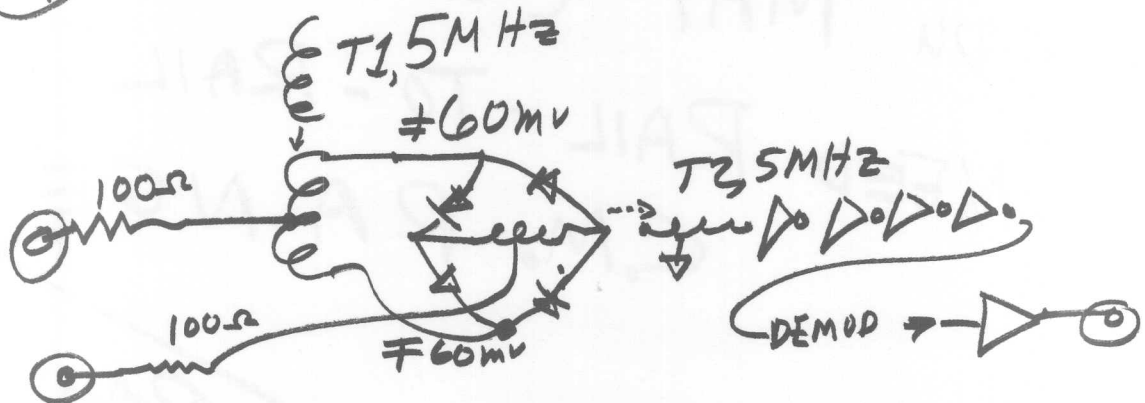 T1, 5MHz
∓60mv
100Ω
T2, 5MHZ
100Ω
∓60mv
DEMOD